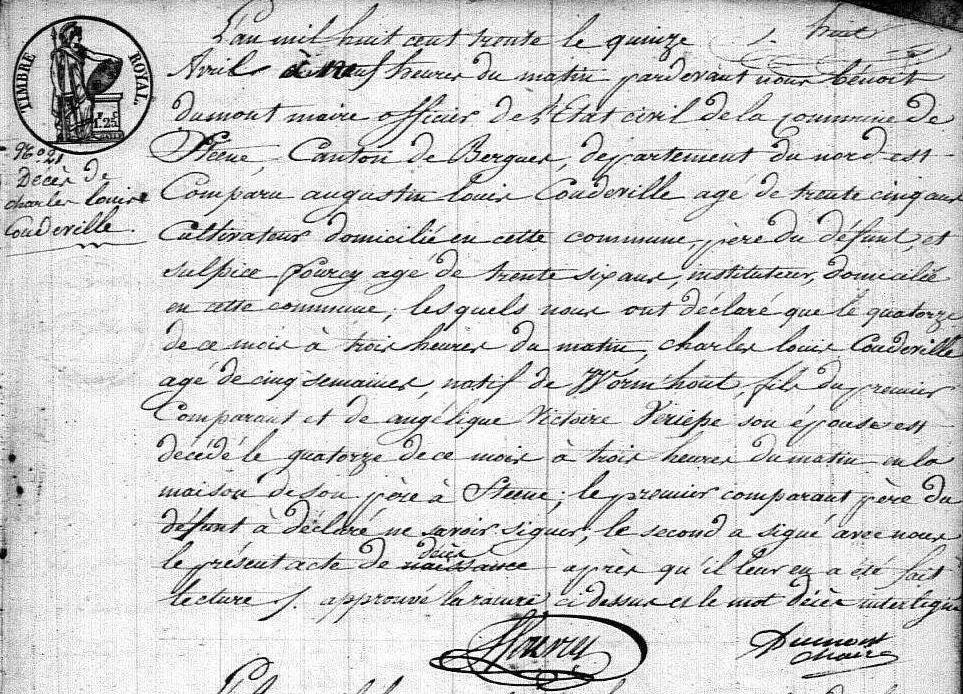 huit
L'an mil huit cent trente le quinze
Avril à neuf heures du matin pardevant nous benoit
dumont maire officier de l'Etat civil de la commune de
Steene, Canton de Bergues, département du nord est
Comparu augustin louis Coudeville agé de trente cinq ans
Cultivateur domicilié en cette commune, père du défunt et
sulpice fourcy agé de trente six ans, instituteur, domicilié
en cette commune; lesquels nous ont déclaré que le quatorze
de ce mois à trois heures du matin, charles louis Coudeville
agé de cinq semaines, natif de Wormhout, fils du premier
Comparant et de angélique Victoire Veriepe son épouse est
décédé le quatorze de ce mois à trois heures du matin en la
maison de son père à Steene; le premier comparant père du
défunt à déclaré ne savoir signer, le second a signé avec nous
décès
le présent acte de naissance après qu'il leur en a été fait
lecture /. approuvé la rature ci dessus et le mot décès interligne
Dumont
Maire
TIMBRE ROYAL
1.25c
N° 21
Décès de
charles louis
Coudeville.